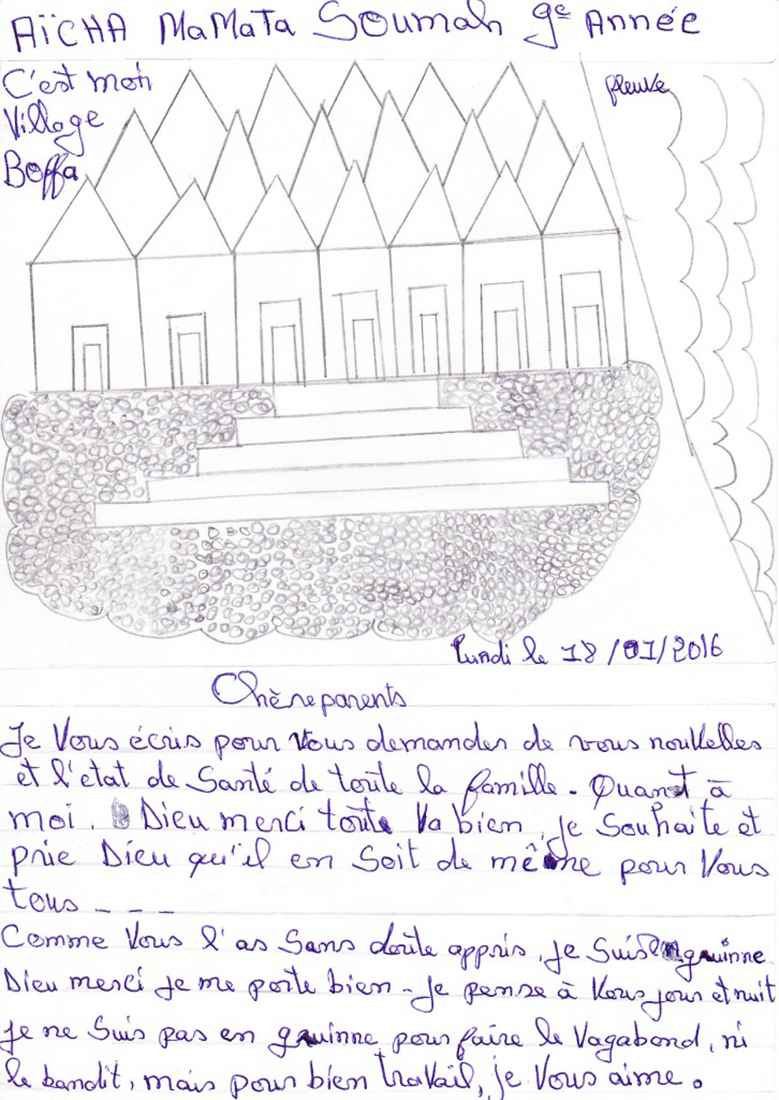 AÏCHA MaMaTa Soumah 9e Année
C'est mon
Village
Boffa
fleuve
Lundi le 18/01/2016
Chère parents
Je Vous écris pour Vous demander de vous nouvelles
et l'état de Santé de toute la famille - Quant à
moi. Dieu merci toute Va bien, je Souhaite et
prie Dieu qu'il en Soit de même pour Vous
tous _ _ _
Comme Vous l'as Sans doute appris, je Suis en guinne
Dieu merci je me porte bien - Je pense à Vous jour et nuit
Je ne Suis pas en guinne pour faire le Vagabond, ni
le bandit, mais pour bien travail, je Vous aime.